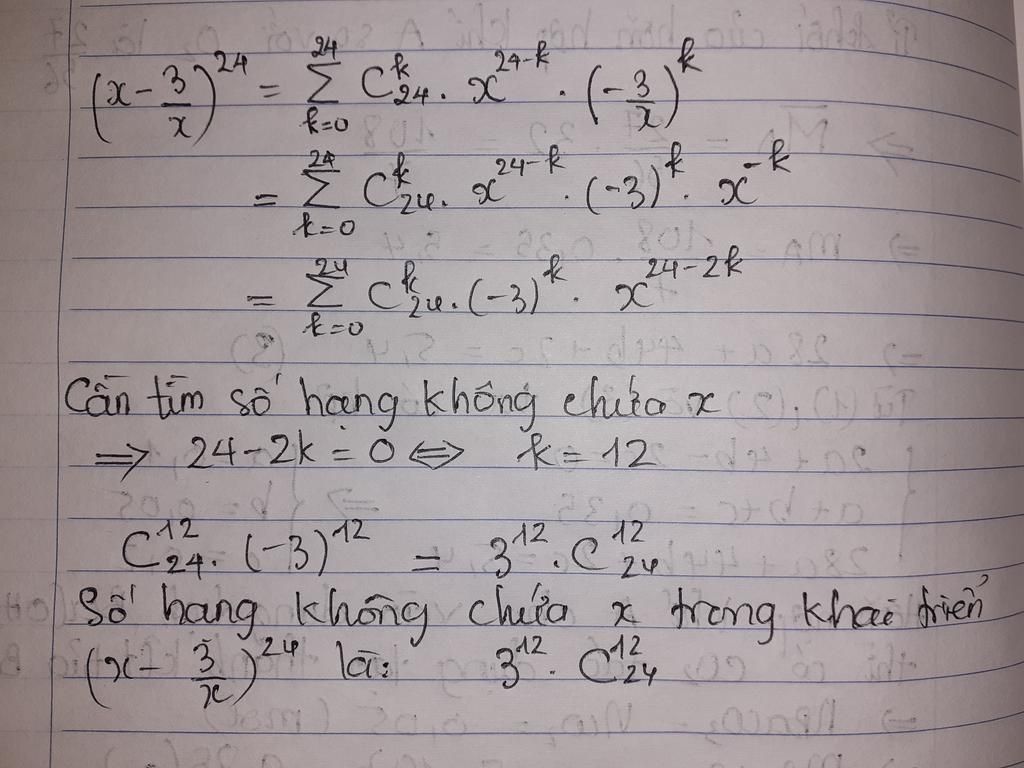 (x - 3/x)^24 = Σ_{k=0}^{24} C_24^k . x^{24-k} . (-3/x)^k
= Σ_{k=0}^{24} C_24^k . x^{24-k} . (-3)^k . x^{-k}
= Σ_{k=0}^{24} C_24^k . (-3)^k . x^{24-2k}
Cần tìm số hạng không chứa x
⇒ 24-2k = 0 ⇔ k = 12
C_24^12 . (-3)^12 = 3^12 . C_24^12
Số hạng không chứa x trong khai triển
(x - 3/x)^24 là: 3^12 . C_24^12